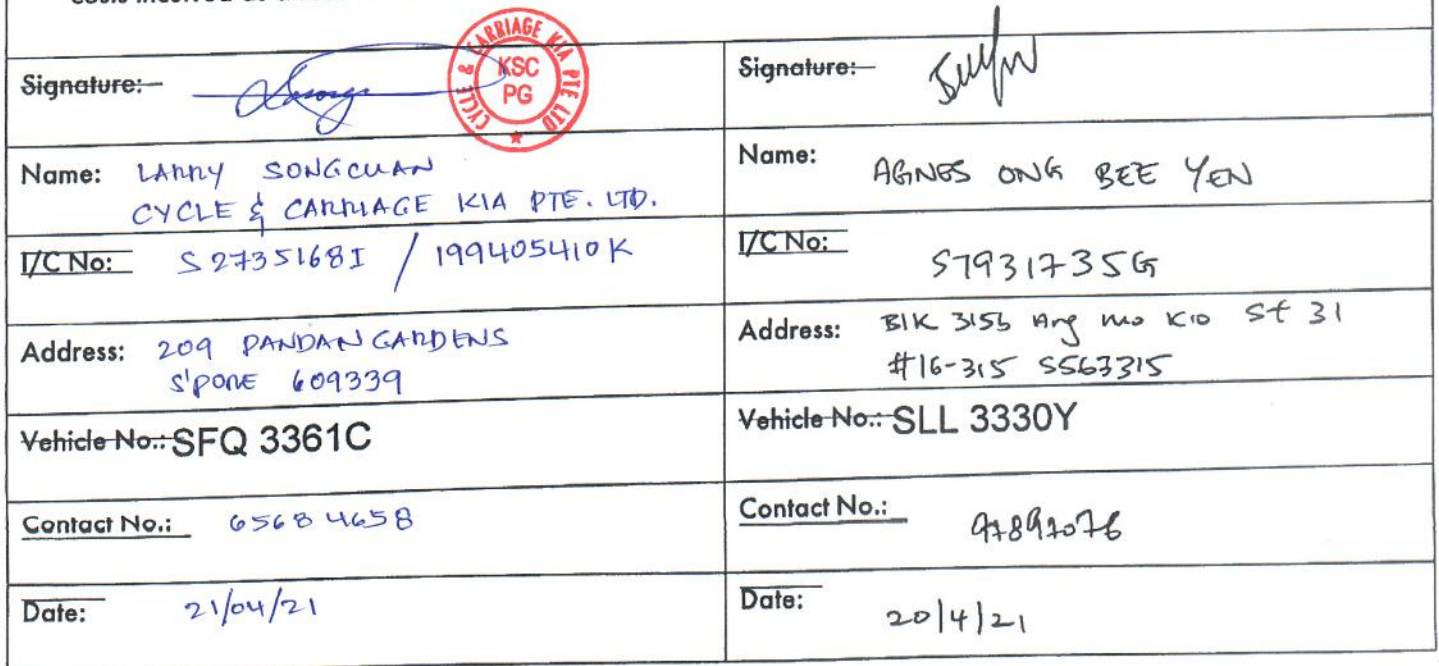 Signature:
CYCLE & CARRIAGE KIA PTE LTD
KSC
PG
Signature:
Name: LARRY SONGCUAN
CYCLE & CARRIAGE KIA PTE. LTD.
Name: AGNES ONG BEE YEN
I/C No: S2735168I / 199405410K
I/C No: S7931735G
Address: 209 PANDAN GARDENS
S'PORE 609339
Address: Blk 315b Ang mo kio St 31
#16-315 S563315
Vehicle No.: SFQ 3361C
Vehicle No.: SLL 3330Y
Contact No.: 65684658
Contact No.: 97897076
Date: 21/04/21
Date: 20/4/21